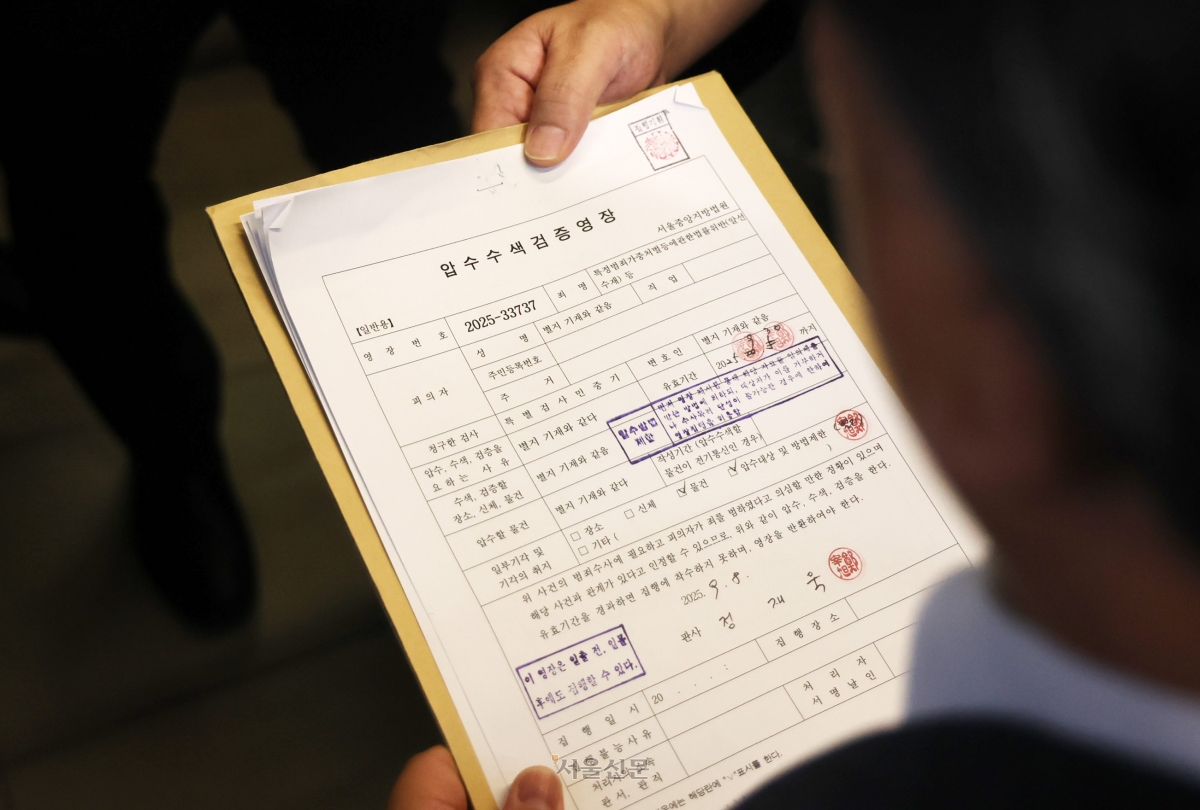 집행기회
압수수색검증영장
서울중앙지방법원
【일반용】
영장번호 2025-33737 죄명 특정범죄가중처벌등에관한법률위반(알선
수재) 등
피의자 성명 별지 기재와 같음 직업
주민등록번호
주거
청구한 검사 특별검사 민중기 변호인 별지 기재와 같음
압수, 수색, 검증을
요하는 사유 별지 기재와 같다 유효기간 2025 9 30 까지
수색, 검증할
장소, 신체, 물건 별지 기재와 같음
압수방법
제한
압수할 물건 별지 기재와 같다 작성기간 (압수수색할
물건이 전기통신인 경우)
일부기각 및
기각의 취지 □ 장소 □ 신체 ☑ 물건 ☑ 압수대상 및 방법제한
□ 기타 ( )
위 사건의 범죄수사에 필요하고 피의자가 죄를 범하였다고 의심할 만한 정황이 있으며
해당 사건과 관계가 있다고 인정할 수 있으므로, 위와 같이 압수, 수색, 검증을 한다.
유효기간을 경과하면 집행에 착수하지 못하며, 영장을 반환하여야 한다.
2025. 9. 8.
판사 정재욱
이 영장은 일출 전, 일몰
후에도 집행할 수 있다.
집행일시 20 . . . : 집행장소
불능사유 처리자
서명날인
처리
관서, 관직
해당란에 "∨"표시를 한다.
서울신문